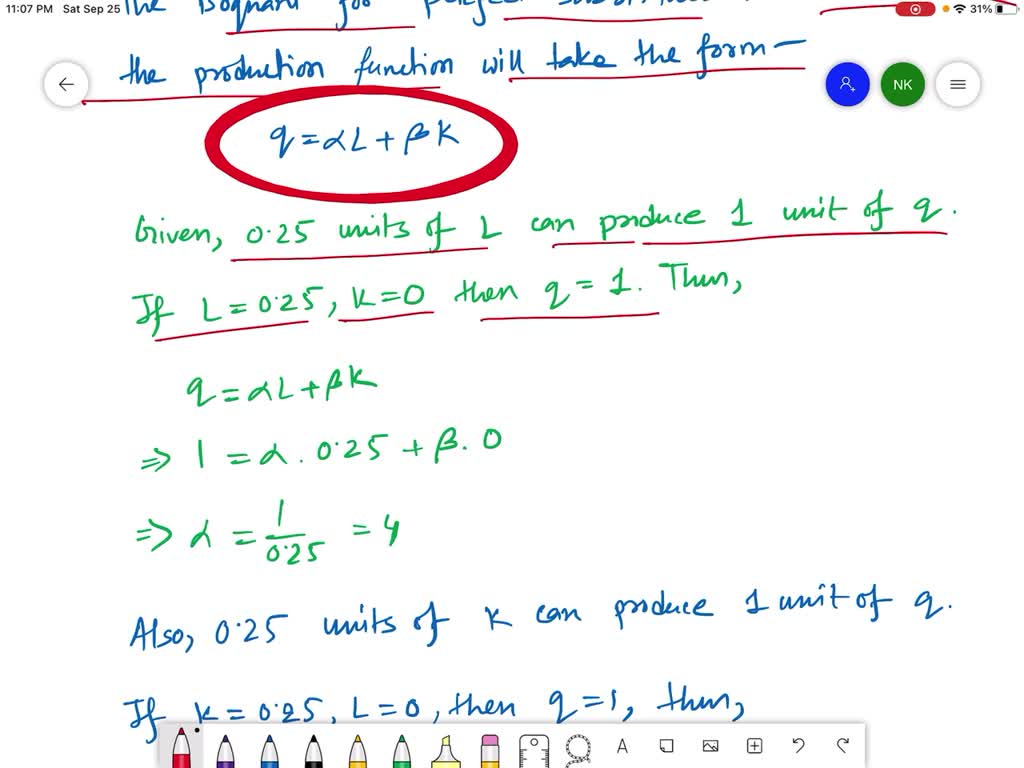 11:07 PM Sat Sep 25
31%
The isoquant for perfect
the production function will take the form—
NK
q = αL + βK
Given, 0.25 units of L can produce 1 unit of q.
If L = 0.25, K = 0 then q = 1. Then,
q = αL + βK
⇒ 1 = α . 0.25 + β . 0
⇒ α = 1/0.25 = 4
Also, 0.25 units of K can produce 1 unit of q.
If K = 0.25, L = 0, then q = 1, then,
A